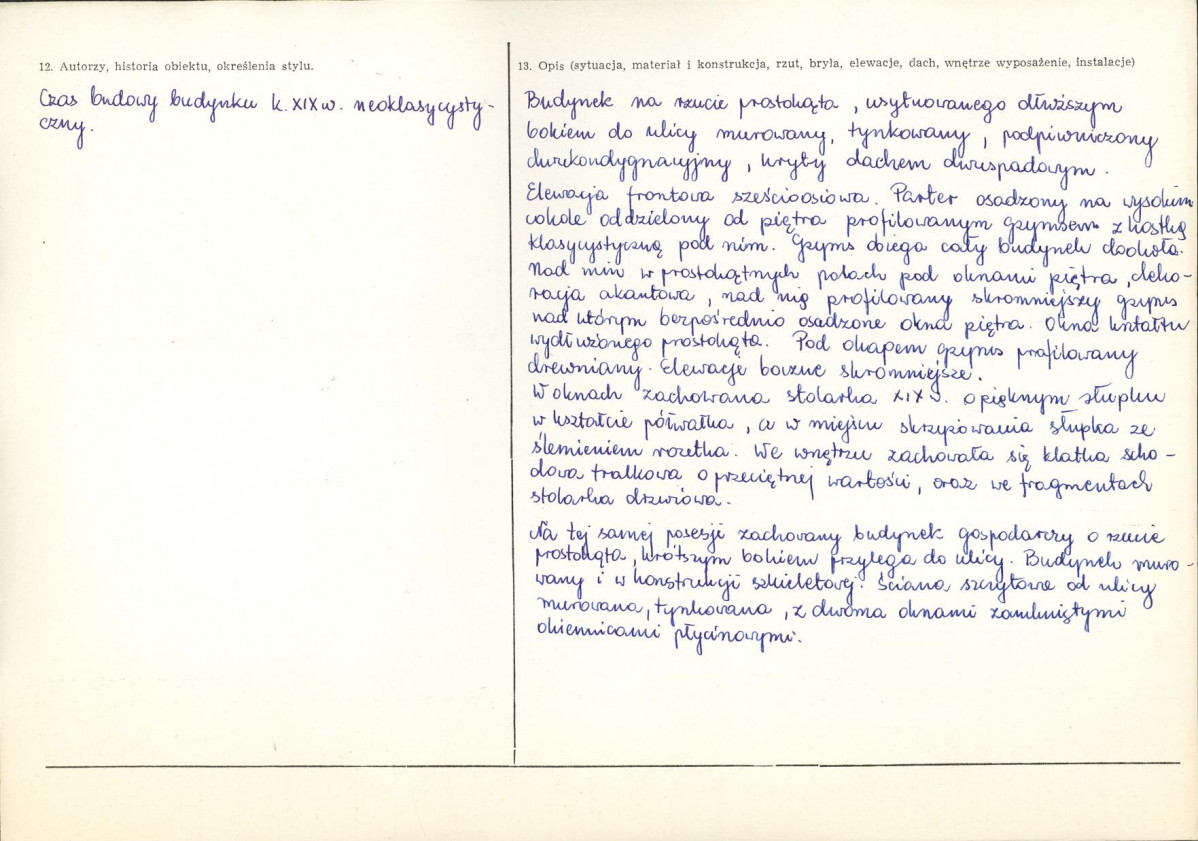 12. Autorzy, historia obiektu, określenia stylu.
Czas budowy budynku k. XIX w. neoklasycysty-
czny.
13. Opis (sytuacja, materiał i konstrukcja, rzut, bryła, elewacje, dach, wnętrze wyposażenie, instalacje)
Budynek na rzucie prostokąta, usytuowanego dłuższym
bokiem do ulicy murowany, tynkowany, podpiwniczony
dwukondygnacyjny, kryty dachem dwuspadowym.
Elewacja frontowa sześcioosiowa. Parter osadzony na wysokim
cokole oddzielony od piętra profilowanym gzymsem z kostką
klasycystyczną pod nim. Gzyms obiega cały budynek dookoła.
Nad nim w prostokątnych polach pod oknami piętra, deko-
racja akantowa, nad nią profilowany skromniejszy gzyms
nad którym bezpośrednio osadzone okna piętra. Okna kształtu
wydłużonego prostokąta. Pod okapem gzyms profilowany
drewniany. Elewacje boczne skromniejsze.
W oknach zachowana stolarka XIX w. o pięknym słupku
w kształcie półwałka, a w miejscu skrzyżowania słupka ze
ślemieniem rozetka. We wnętrzu zachowała się klatka scho-
dowa tralkowa o przeciętnej wartości, oraz we fragmentach
stolarka drzwiowa.
Na tej samej posesji zachowany budynek gospodarczy o rzucie
prostokąta, krótszym bokiem przylega do ulicy. Budynek muro-
wany i w konstrukcji szkieletowej. Ściana szczytowa od ulicy
murowana, tynkowana, z dwoma oknami zamkniętymi
okiennicami płycinowymi.